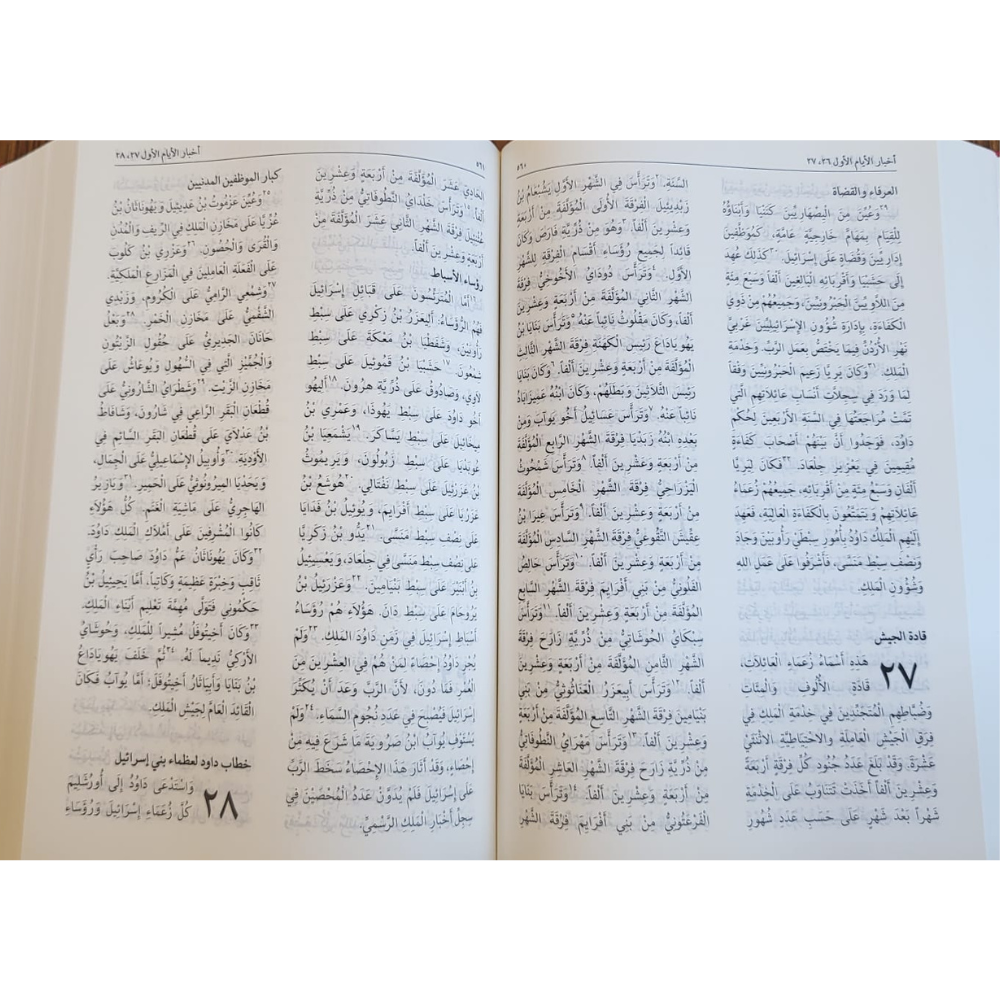 أخبار الأيام الأول ٢٦، ٢٧
٥٦٠
العرفاء والقضاة
٢٩وَعُيِّنَ مِنَ الْيِصْهَارِيِّينَ كَنَنْيَا وَأَبْنَاؤُهُ
لِلْقِيَامِ بِمَهَامَّ خَارِجِيَّةٍ عَامَّةٍ، كَمُوَظَّفِينَ
إِدَارِيِّينَ وَقُضَاةٍ عَلَى إِسْرَائِيلَ. ٣٠كَذَلِكَ عُهِدَ
إِلَى حَشَبْيَا وَأَقْرِبَائِهِ الْبَالِغِينَ أَلْفاً وَسَبْعَ مِئَةٍ
مِنَ اللاَّوِيِّينَ الْحَبْرُونِيِّينَ، وَجَمِيعُهُمْ مِنْ ذَوِي
الْكَفَاءَةِ، بِإِدَارَةِ شُؤُونِ الإِسْرَائِيلِيِّينَ غَرْبِيَّ
نَهْرِ الأُرْدُنِّ فِيمَا يَخْتَصُّ بِعَمَلِ الرَّبِّ، وَخِدْمَةِ
الْمَلِكِ. ٣١وَكَانَ يَرِيَّا زَعِيمَ الْحَبْرُونِيِّينَ وَفْقاً
لِمَا وَرَدَ فِي سِجِلاَّتِ أَنْسَابِ عَائِلاتِهِمِ الَّتِي
تَمَّتْ مُرَاجَعَتُهَا فِي السَّنَةِ الأَرْبَعِينَ لِحُكْمِ
دَاوُدَ، فَوَجَدُوا أَنَّ بَيْنَهُمْ أَصْحَابَ كَفَاءَةٍ
مُقِيمِينَ فِي يَعْزِيرِ جِلْعَادَ. ٣٢فَكَانَ لِيَرِيَّا
أَلْفَانِ وَسَبْعُ مِئَةٍ مِنْ أَقْرِبَائِهِ، جَمِيعُهُمْ زُعَمَاءُ
عَائِلاتِهِمْ وَيَتَمَتَّعُونَ بِالْكَفَاءَةِ الْعَالِيَةِ، فَعَهِدَ
إِلَيْهِمِ الْمَلِكُ دَاوُدُ بِأُمُورِ سِبْطَيْ رَأُوبَيْنَ وَجَادَ
وَنِصْفِ سِبْطِ مَنَسَّى، فَأَشْرَفُوا عَلَى عَمَلِ اللهِ
وَشُؤُونِ الْمَلِكِ.
قادة الجيش
٢٧ هَذِهِ أَسْمَاءُ زُعَمَاءِ الْعَائِلاَتِ،
قَادَةِ الأُلُوفِ وَالْمِئَاتِ
وَضُبَّاطِهِمِ الْمُتَجَنِّدِينَ فِي خِدْمَةِ الْمَلِكِ فِي
فِرَقِ الْجَيْشِ الْعَامِلَةِ وَالاحْتِيَاطِيَّةِ الاثْنَتَيْ
عَشْرَةَ. وَقَدْ بَلَغَ عَدَدُ جُنُودِ كُلِّ فِرْقَةٍ أَرْبَعَةً
وَعِشْرِينَ أَلْفاً أَخَذَتْ تَتَنَاوَبُ عَلَى الْخِدْمَةِ
شَهْراً بَعْدَ شَهْرٍ عَلَى حَسَبِ عَدَدِ شُهُورِ
السَّنَةِ. ٢وَتَرَأَّسَ فِي الشَّهْرِ الأَوَّلِ يَشُبْعَامُ بْنُ
زَبْدِيئِيلَ الْفِرْقَةَ الأُولَى الْمُؤَلَّفَةَ مِنْ أَرْبَعَةٍ
وَعِشْرِينَ أَلْفاً. ٣وَهُوَ مِنْ ذُرِّيَّةِ فَارَصَ وَكَانَ
قَائِداً لِجَمِيعِ رُؤَسَاءِ أَقْسَامِ الْفِرْقَةِ لِلشَّهْرِ
الأَوَّلِ. ٤وَتَرَأَّسَ دُودَايُ الأَخُوخِيُّ فِرْقَةَ
الشَّهْرِ الثَّانِي الْمُؤَلَّفَةَ مِنْ أَرْبَعَةٍ وَعِشْرِينَ
أَلْفاً، وَكَانَ مَقْلُوثُ نَائِباً عَنْهُ. ٥وَتَرَأَّسَ بَنَايَا بْنُ
يَهُويَادَاعَ رَئِيسِ الْكَهَنَةِ فِرْقَةَ الشَّهْرِ الثَّالِثِ
الْمُؤَلَّفَةَ مِنْ أَرْبَعَةٍ وَعِشْرِينَ أَلْفاً. ٦وَكَانَ بَنَايَا
رَئِيسَ الثَّلاثِينَ وَبَطَلَهُمْ، وَكَانَ ابْنُهُ عَمِّيزَابَادُ
نَائِباً عَنْهُ. ٧وَتَرَأَّسَ عَسَائِيلُ أَخُو يُوآبَ وَمِنْ
بَعْدِهِ ابْنُهُ زَبَدْيَا فِرْقَةَ الشَّهْرِ الرَّابِعِ الْمُؤَلَّفَةَ
مِنْ أَرْبَعَةٍ وَعِشْرِينَ أَلْفاً. ٨وَتَرَأَّسَ شَمْحُوثُ
الْيَزْرَاحِيُّ فِرْقَةَ الشَّهْرِ الْخَامِسِ الْمُؤَلَّفَةَ
مِنْ أَرْبَعَةٍ وَعِشْرِينَ أَلْفاً. ٩وَتَرَأَّسَ عِيرَا بْنُ
عِقِّيشَ التَّقُوعِيُّ فِرْقَةَ الشَّهْرِ السَّادِسِ الْمُؤَلَّفَةَ
مِنْ أَرْبَعَةٍ وَعِشْرِينَ أَلْفاً. ١٠وَتَرَأَّسَ حَالِصُ
الْفَلُونِيُّ مِنْ بَنِي أَفْرَايِمَ فِرْقَةَ الشَّهْرِ السَّابِعِ
الْمُؤَلَّفَةَ مِنْ أَرْبَعَةٍ وَعِشْرِينَ أَلْفاً. ١١وَتَرَأَّسَ
سِبْكَايُ الْحُوشَاتِيُّ مِنْ ذُرِّيَّةِ زَارَحَ فِرْقَةَ
الشَّهْرِ الثَّامِنِ الْمُؤَلَّفَةَ مِنْ أَرْبَعَةٍ وَعِشْرِينَ
أَلْفاً. ١٢وَتَرَأَّسَ أَبِيعَزَرُ الْعَنَاثُوثِيُّ مِنْ بَنِي
بَنْيَامِينَ فِرْقَةَ الشَّهْرِ التَّاسِعِ الْمُؤَلَّفَةَ مِنْ أَرْبَعَةٍ
وَعِشْرِينَ أَلْفاً. ١٣وَتَرَأَّسَ مَهْرَايُ النَّطُوفَاتِيُّ
مِنْ ذُرِّيَّةِ زَارَحَ فِرْقَةَ الشَّهْرِ الْعَاشِرِ الْمُؤَلَّفَةَ
مِنْ أَرْبَعَةٍ وَعِشْرِينَ أَلْفاً. ١٤وَتَرَأَّسَ بَنَايَا
الْفِرْعَتُونِيُّ مِنْ بَنِي أَفْرَايِمَ فِرْقَةَ الشَّهْرِ
٥٦١
أخبار الأيام الأول ٢٧، ٢٨
الْحَادِي عَشَرَ الْمُؤَلَّفَةَ مِنْ أَرْبَعَةٍ وَعِشْرِينَ
أَلْفاً. ١٥وَتَرَأَّسَ خَلْدَايُ النَّطُوفَاتِيُّ مِنْ ذُرِّيَّةِ
عُثْنِئِيلَ فِرْقَةَ الشَّهْرِ الثَّانِي عَشَرَ الْمُؤَلَّفَةَ مِنْ
أَرْبَعَةٍ وَعِشْرِينَ أَلْفاً.
رؤساء الأسباط
١٦أَمَّا الْمُتَرَئِّسُونَ عَلَى قَبَائِلِ إِسْرَائِيلَ
فَهُمُ الرُّؤَسَاءُ: أَلِيعَزَرُ بْنُ زِكْرِي عَلَى سِبْطِ
رَأُوبَيْنَ، وَشَفَطْيَا بْنُ مَعْكَةَ عَلَى سِبْطِ
شِمْعُونَ. ١٧حَشَبْيَا بْنُ قَمُوئِيلَ عَلَى سِبْطِ
لاَوِي، وَصَادُوقُ عَلَى ذُرِّيَّةِ هرُونَ. ١٨أَلِيهُو
أَخُو دَاوُدَ عَلَى سِبْطِ يَهُوذَا، وَعَمْرِي بْنُ
مِيخَائِيلَ عَلَى سِبْطِ يَسَّاكَرَ. ١٩يَشْمَعْيَا بْنُ
عُوبَدْيَا عَلَى سِبْطِ زَبُولُونَ، وَيَرِيمُوثُ
بْنُ عَزَرْئِيلَ عَلَى سِبْطِ نَفْتَالِي. ٢٠هُوشَعُ بْنُ
عَزَرْيَا عَلَى سِبْطِ أَفْرَايِمَ، وَيُوئِيلُ بْنُ فَدَايَا
عَلَى نِصْفِ سِبْطِ مَنَسَّى. ٢١يَدُّو بْنُ زَكَرِيَّا
عَلَى نِصْفِ سِبْطِ مَنَسَّى فِي جِلْعَادَ، وَيَعْسِيئِيلُ
بْنُ أَبْنَيْرَ عَلَى سِبْطِ بَنْيَامِينَ. ٢٢وَعَزَرْئِيلُ بْنُ
يَرُوحَامَ عَلَى سِبْطِ دَانَ. هَؤُلاَءِ هُمْ رُؤَسَاءُ
أَسْبَاطِ إِسْرَائِيلَ فِي زَمَنِ دَاوُدَ الْمَلِكِ. ٢٣وَلَمْ
يُجْرِ دَاوُدُ إِحْصَاءً لِمَنْ هُمْ فِي الْعِشْرِينَ مِنَ
الْعُمْرِ فَمَا دُونَ، لأَنَّ الرَّبَّ وَعَدَ أَنْ يُكَثِّرَ
إِسْرَائِيلَ فَيُصْبِحَ فِي عَدَدِ نُجُومِ السَّمَاءِ. ٢٤وَلَمْ
يَسْتَوْفِ يُوآبُ ابْنُ صُرُويَةَ مَا شَرَعَ فِيهِ مِنْ
إِحْصَاءٍ، وَقَدْ أَثَارَ هَذَا الإِحْصَاءُ سَخَطَ الرَّبِّ
عَلَى إِسْرَائِيلَ فَلَمْ يُدَوَّنْ عَدَدُ الْمُحْصَيْنَ فِي
سِجِلِّ أَخْبَارِ الْمَلِكِ الرَّسْمِيِّ.
كبار الموظفين المدنيين
٢٥وَعُيِّنَ عَزْمُوتُ بْنُ عَدِيئِيلَ وَيَهُونَاثَانُ بْنُ
عُزِّيَّا عَلَى مَخَازِنِ الْمَلِكِ فِي الرِّيفِ وَالْمُدُنِ
وَالْقُرَى وَالْحُصُونِ. ٢٦وَعَزْرِي بْنُ كَلُوبَ
عَلَى الْفَعَلَةِ الْعَامِلِينَ فِي الْمَزَارِعِ الْمَلَكِيَّةِ.
٢٧وَشِمْعِي الرَّامِيُّ عَلَى الْكُرُومِ، وَزَبْدِي
الشِّفْمِيُّ عَلَى مَخَازِنِ الْخَمْرِ. ٢٨وَبَعْلُ
حَانَانَ الْجَدِيرِيُّ عَلَى حُقُولِ الزَّيْتُونِ
وَالْجُمَّيْزِ الَّتِي فِي السُّهُولِ وَيُوعَاشُ عَلَى
مَخَازِنِ الزَّيْتِ. ٢٩وَشَطْرَايُ الشَّارُونِيُّ عَلَى
قُطْعَانِ الْبَقَرِ الرَّاعِي فِي شَارُونَ، وَشَافَاطُ
بْنُ عَدْلاَيَ عَلَى قُطْعَانِ الْبَقَرِ السَّائِمِ فِي
الأَوْدِيَةِ. ٣٠وَأُوبِيلُ الإِسْمَاعِيلِيُّ عَلَى الْجِمَالِ،
وَيَحَدْيَا الْمِيرُونُوثِيُّ عَلَى الْحَمِيرِ. ٣١وَيَازِيزُ
الْهَاجَرِيُّ عَلَى مَاشِيَةِ الْغَنَمِ. كُلُّ هَؤُلاَءِ
كَانُوا الْمُشْرِفِينَ عَلَى أَمْلاَكِ الْمَلِكِ دَاوُدَ.
٣٢وَكَانَ يَهُونَاثَانُ عَمُّ دَاوُدَ صَاحِبَ رَأْيٍ
ثَاقِبٍ وَخِبْرَةٍ عَظِيمَةٍ وَكَاتِباً. أَمَّا يَحِيئِيلُ بْنُ
حَكْمُونِي فَتَوَلَّى مُهِمَّةَ تَعْلِيمِ أَبْنَاءِ الْمَلِكِ.
٣٣وَكَانَ أَخِيتُوفَلُ مُشِيراً لِلْمَلِكِ، وَحُوشَايُ
الأَرْكِيُّ نَدِيماً لَهُ. ٣٤ثُمَّ خَلَفَ يَهُويَادَاعُ
بْنُ بَنَايَا وَأَبِيَاثَارُ أَخِيتُوفَلَ؛ أَمَّا يُوآبُ فَكَانَ
الْقَائِدَ الْعَامَّ لِجَيْشِ الْمَلِكِ.
خطاب داود لعظماء بني إسرائيل
٢٨ وَاسْتَدْعَى دَاوُدُ إِلَى أُورُشَلِيمَ
كُلَّ زُعَمَاءِ إِسْرَائِيلَ وَرُؤَسَاءِ